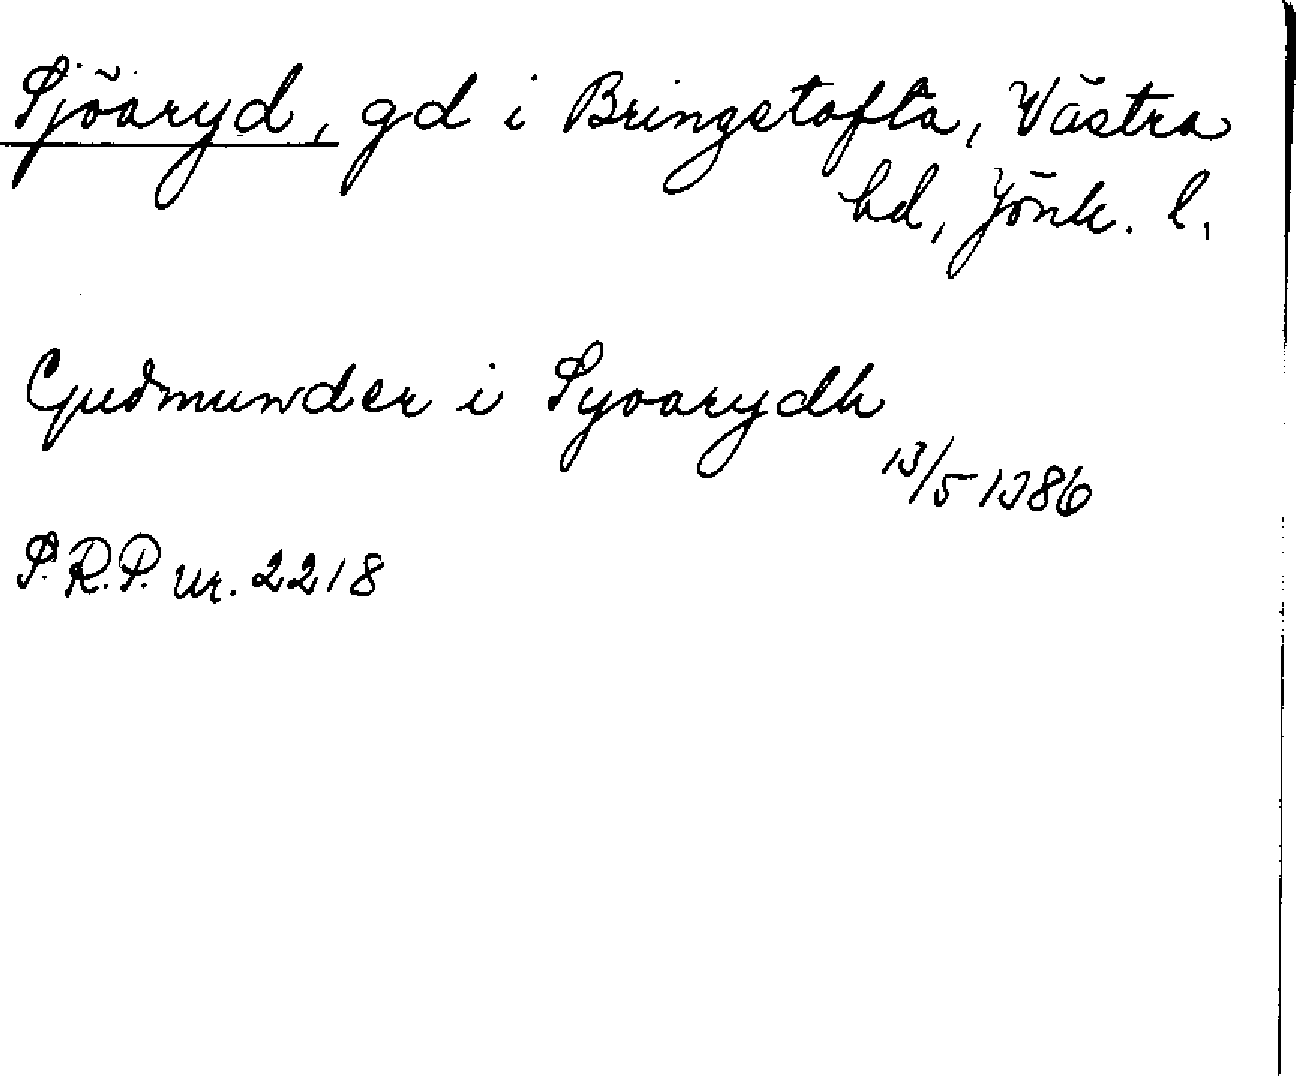 Sjöaryd, gd i Bringetofta, Västra
hd, Jönk. l.
Gudmunder i Syoarydh
13/5 1386
S.R.P. nr. 2218